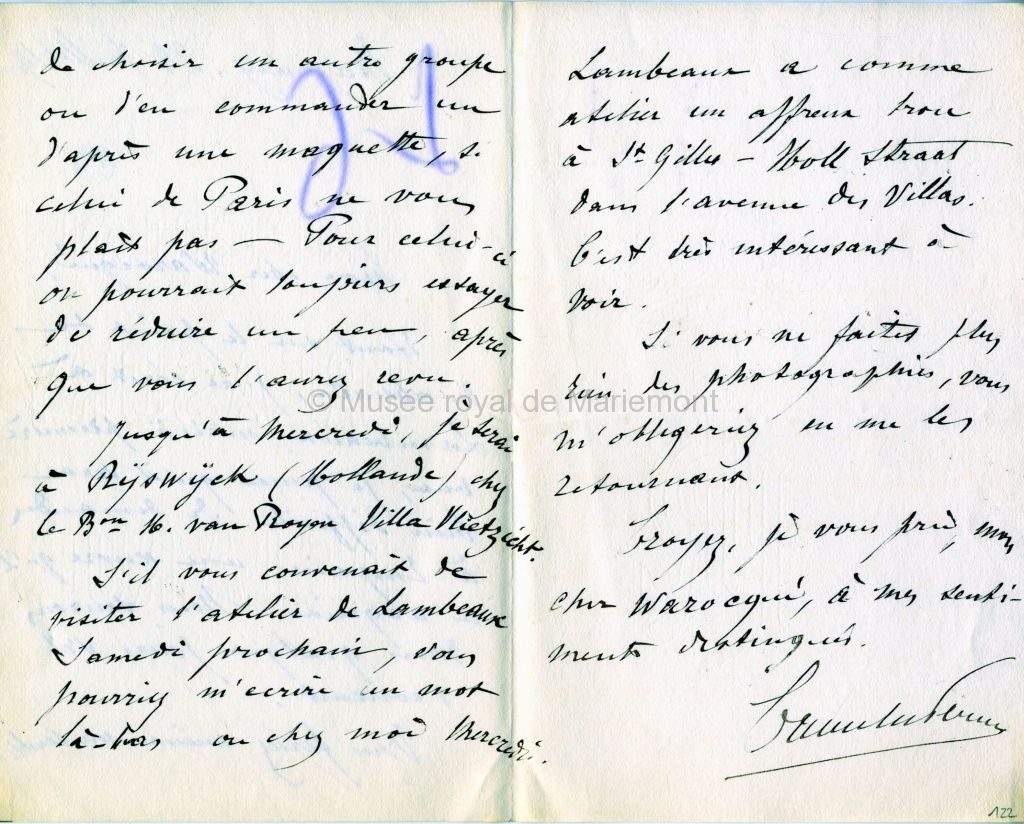 de choisir un autre groupe
ou d'en commander un
d'après une maquette, si
celui de Paris ne vous
plaît pas — Pour celui-ci
on pourrait toujours essayer
de réduire un peu, après
que vous l'aurez revu.
Jusqu'à Mercredi, je serai
à Rijswijck (Hollande) chez
le Bon H. van Royen Villa Vlietzicht.
S'il vous convenait de
visiter l'atelier de Lambeaux
Samedi prochain, vous
pourriez m'ecrire un mot
là-bas ou chez moi Mercredi.
Lambeaux a comme
atelier un affreux trou
à St Gilles — Holl Straat
dans l'avenue des Villas.
C'est très intéressant à
voir.
Si vous ne faites plus
rien des photographies, vous
m'obligeriez en me les
retournant.
Croyez, je vous prie, mon
cher Warocqué, à mes senti-
ments distingués.
122
© Musée royal de Mariemont